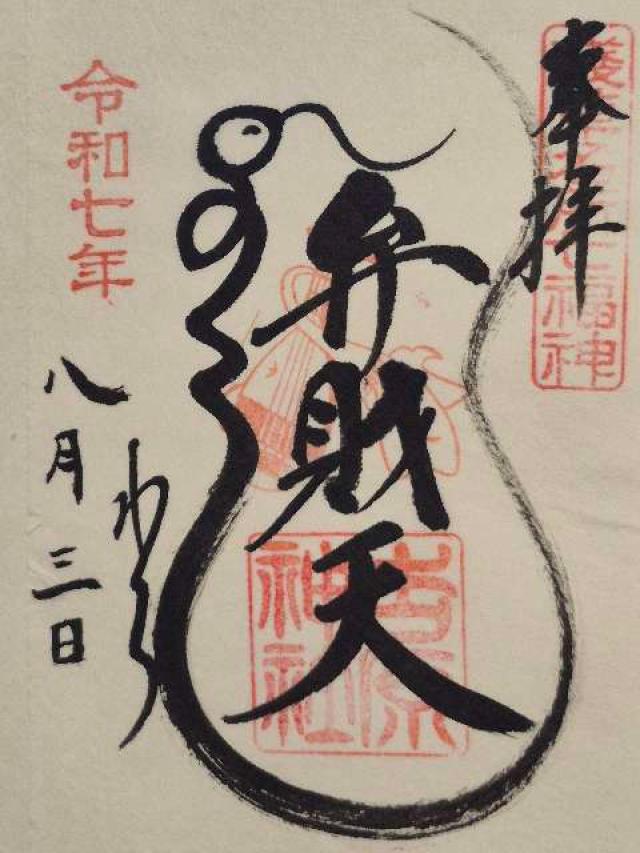 奉拝
七福神
弁財天
吉原
神社
令和七年
八月三日